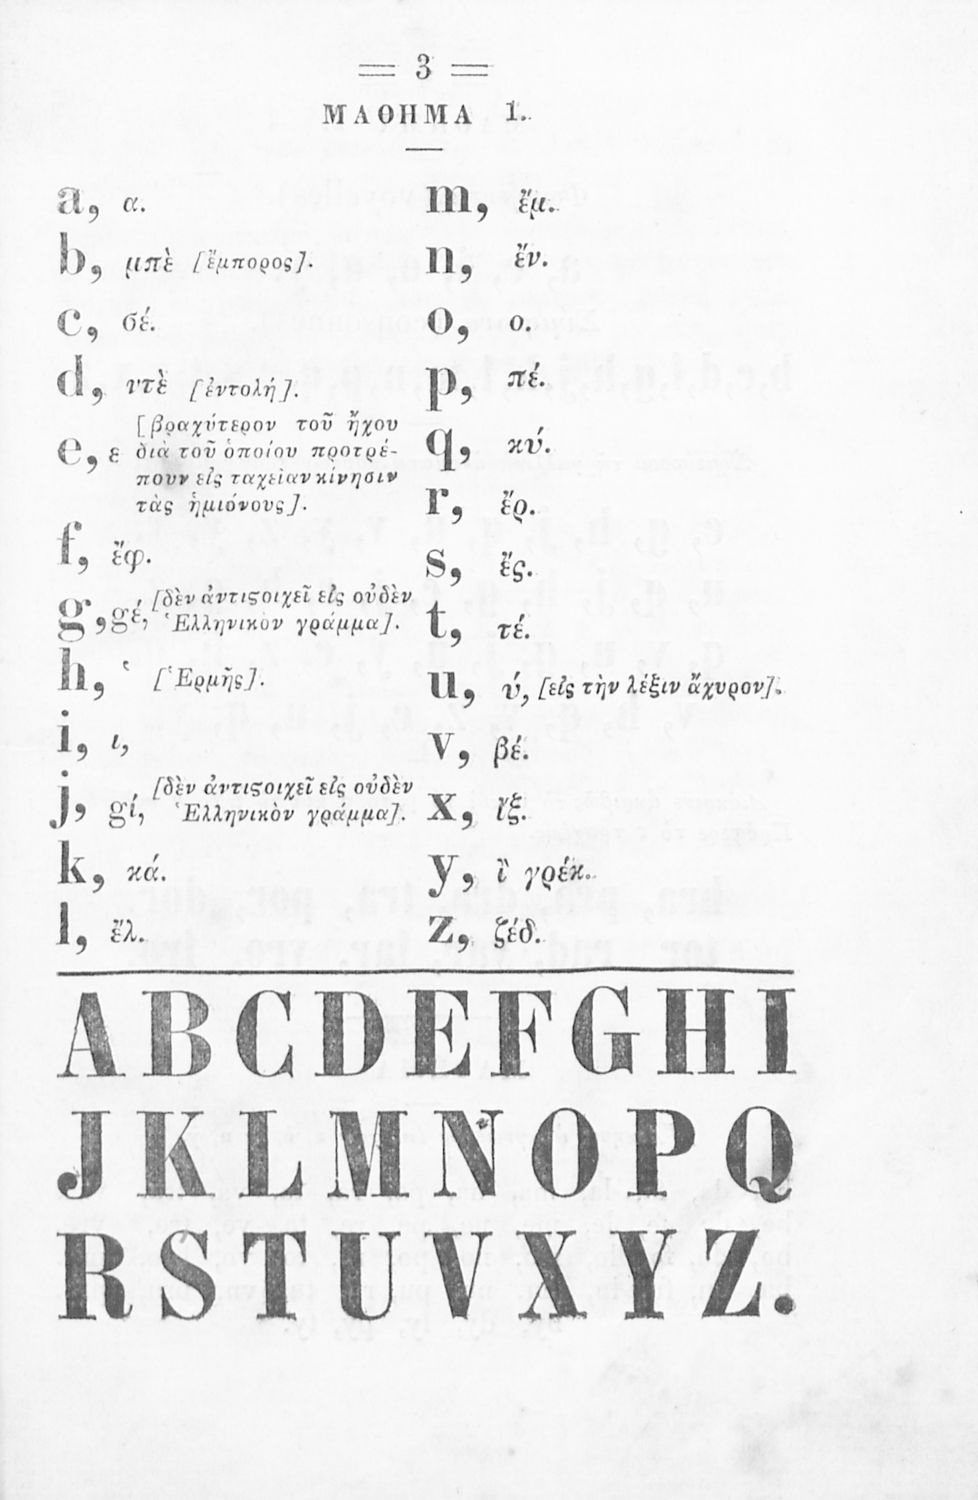 = 3 =
ΜΑΘΗΜΑ 1.
a, α.
b, μπὲ [ἔμποροςς].
c, σέ.
d, ντὲ [ἐντολή].
e, ε [βραχύτερον τοῦ ἤχου
διὰ τοῦ ὁποίου προτρέ-
πουν εἰς ταχεῖαν κίνησιν
τὰς ἡμιόνους].
f, ἔφ.
g, gé, [δὲν ἀντιϛοιχεῖ εἰς οὐδὲν
Ἑλληνικὸν γράμμα].
h, ʽ [Ἑρμῆς].
i, ι,
j, gí, [δὲν ἀντιϛοιχεῖ εἰς οὐδὲν
Ἑλληνικὸν γράμμα].
k, κά.
l, ἔλ.
m, ἔμ.
n, ἔν.
o, ο.
p, πέ.
q, κύ.
r, ἔρ.
s, ἔς.
t, τέ.
u, ύ, [εἰς τὴν λέξιν ἄχυρον].
v, βέ.
x, ἴξ.
y, ἲ γρέκ.
z, ζέδ.
ABCDEFGHI
JKLMNOPQ
RSTUVXYZ.